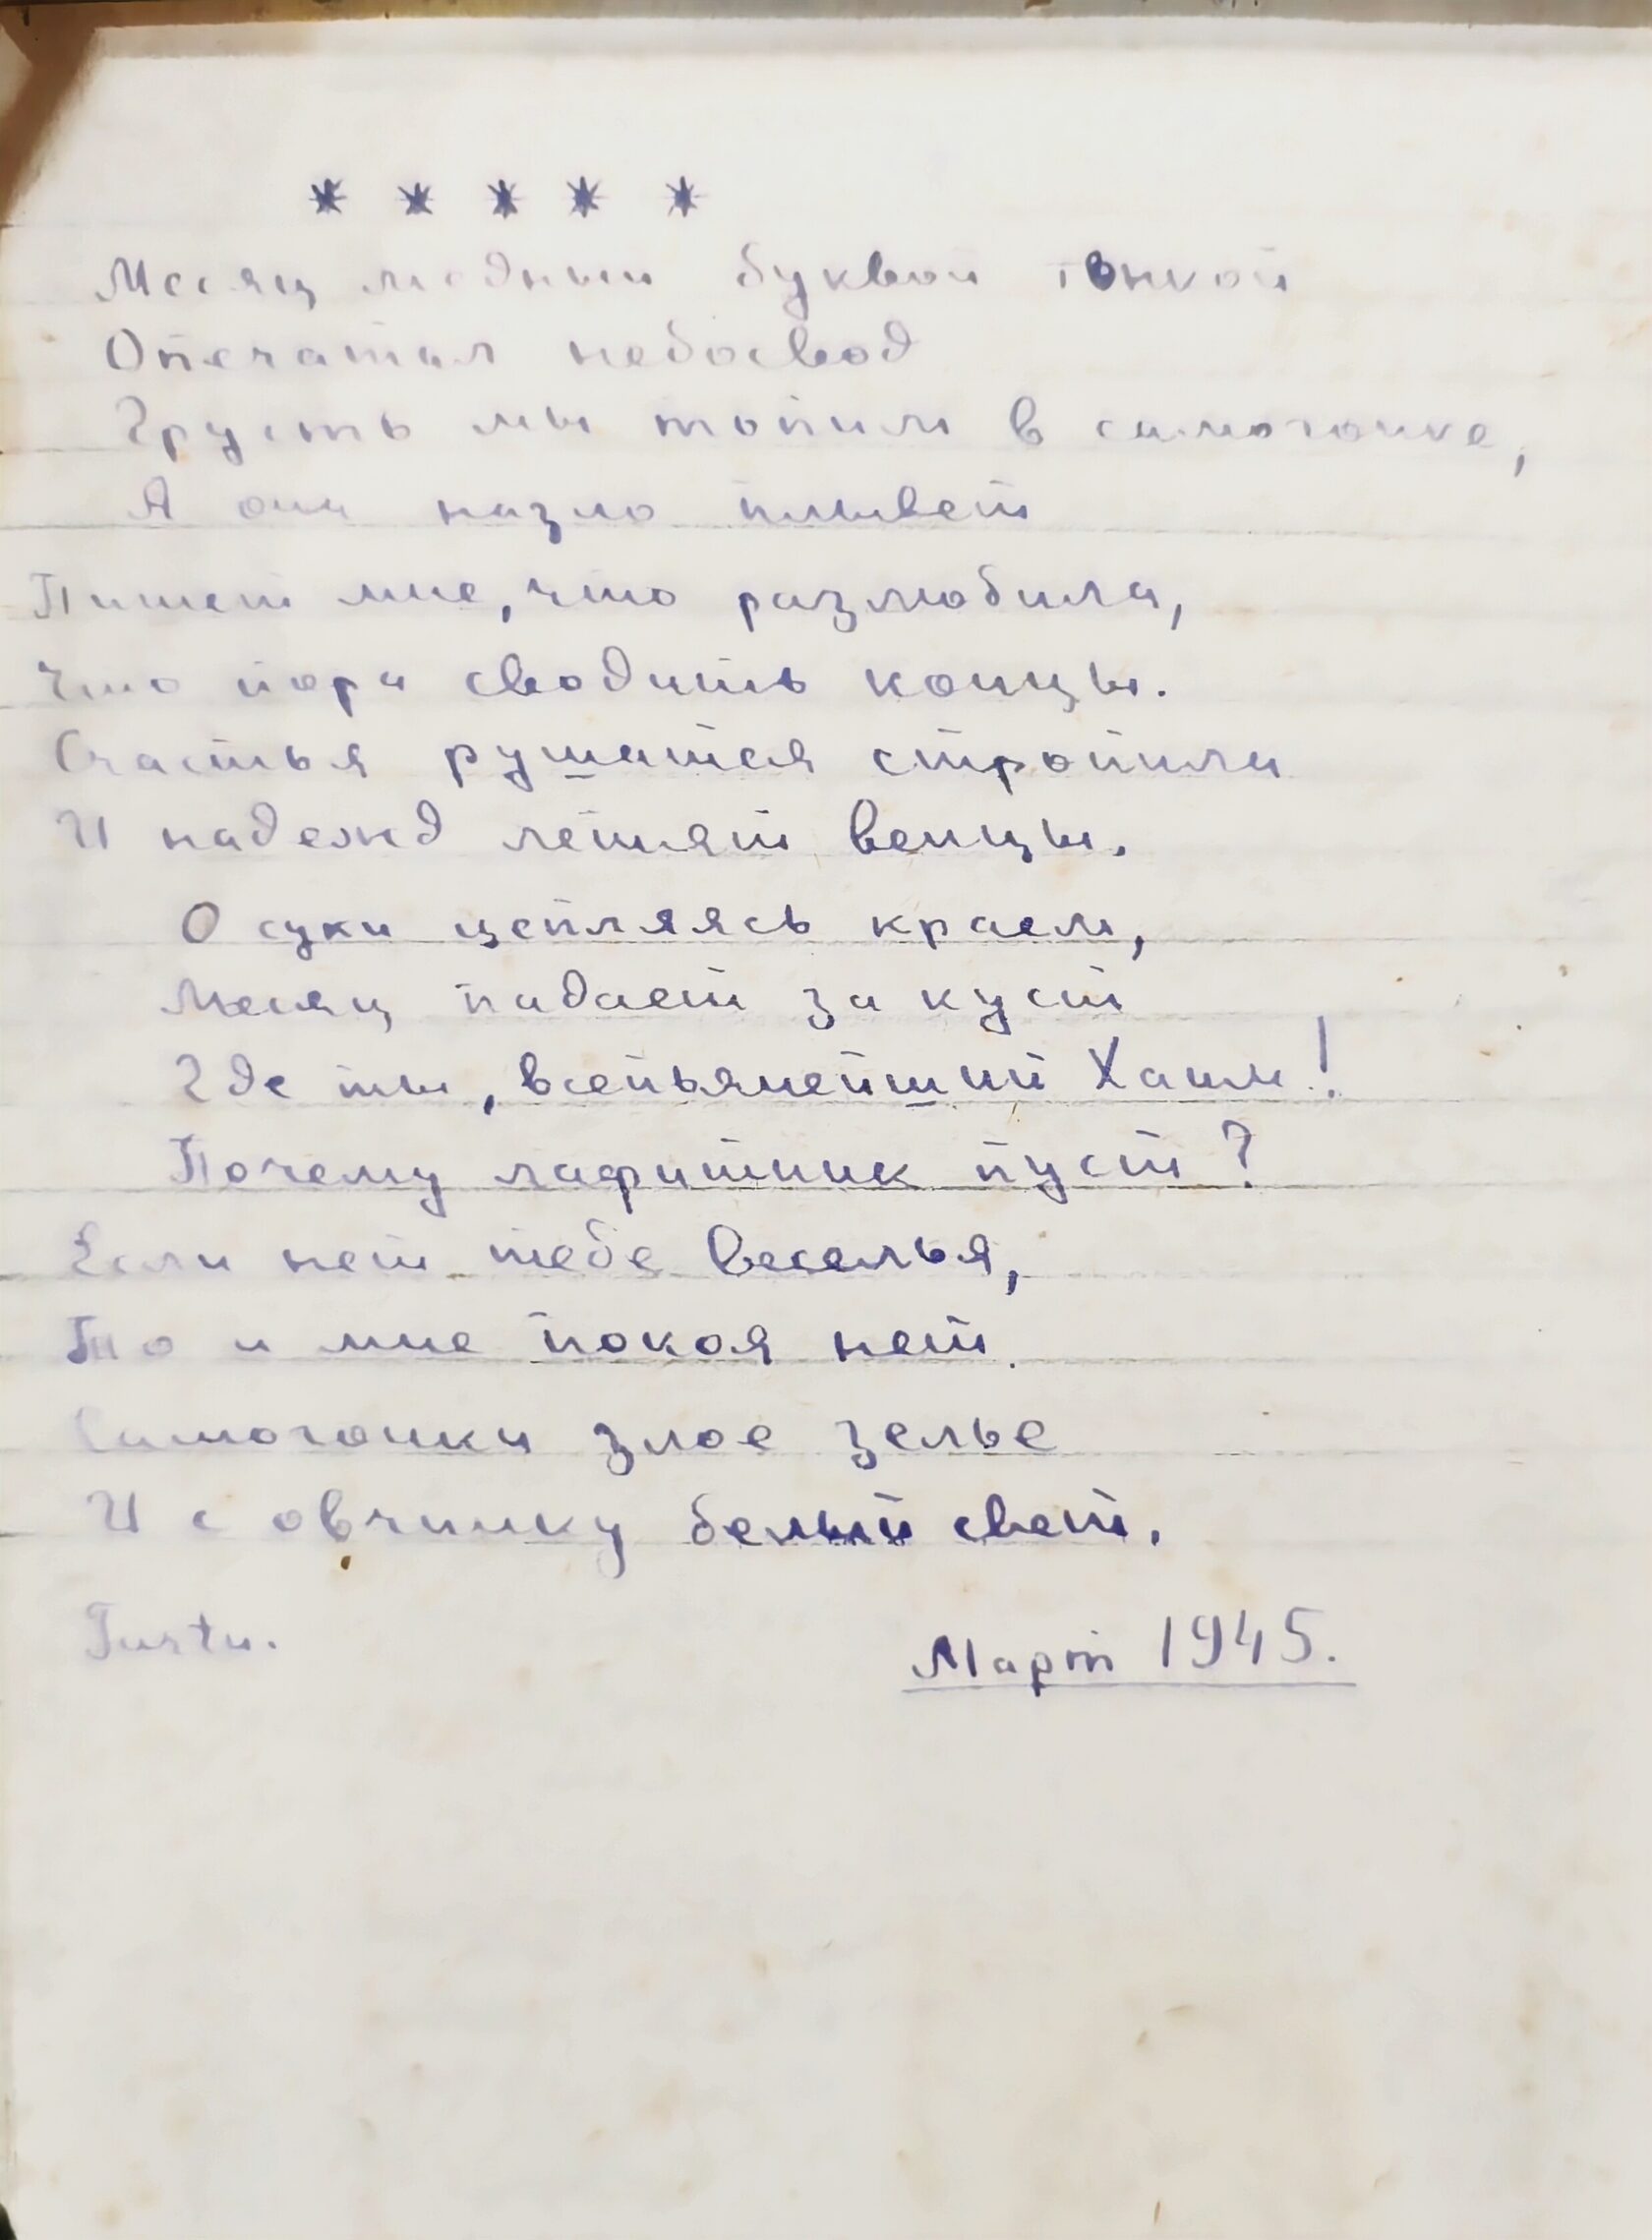 * * * * *
Месяц медный буквой тонкой
Опечатал небосвод
Грусть мы топили в самогонке,
А она назло плывет
Пишет мне, что разлюбила,
Что пора сводить концы.
Счастья рушатся стропила
И надежд летят венцы.
О суки цепляясь краем,
Месяц падает за куст
Где ты, всепьянейший Хаим!
Почему лафитник пуст?
Если нет тебе веселья,
То и мне покоя нет.
Самогонки злое зелье
И с овчинку белый свет.
Tartu.
Март 1945.